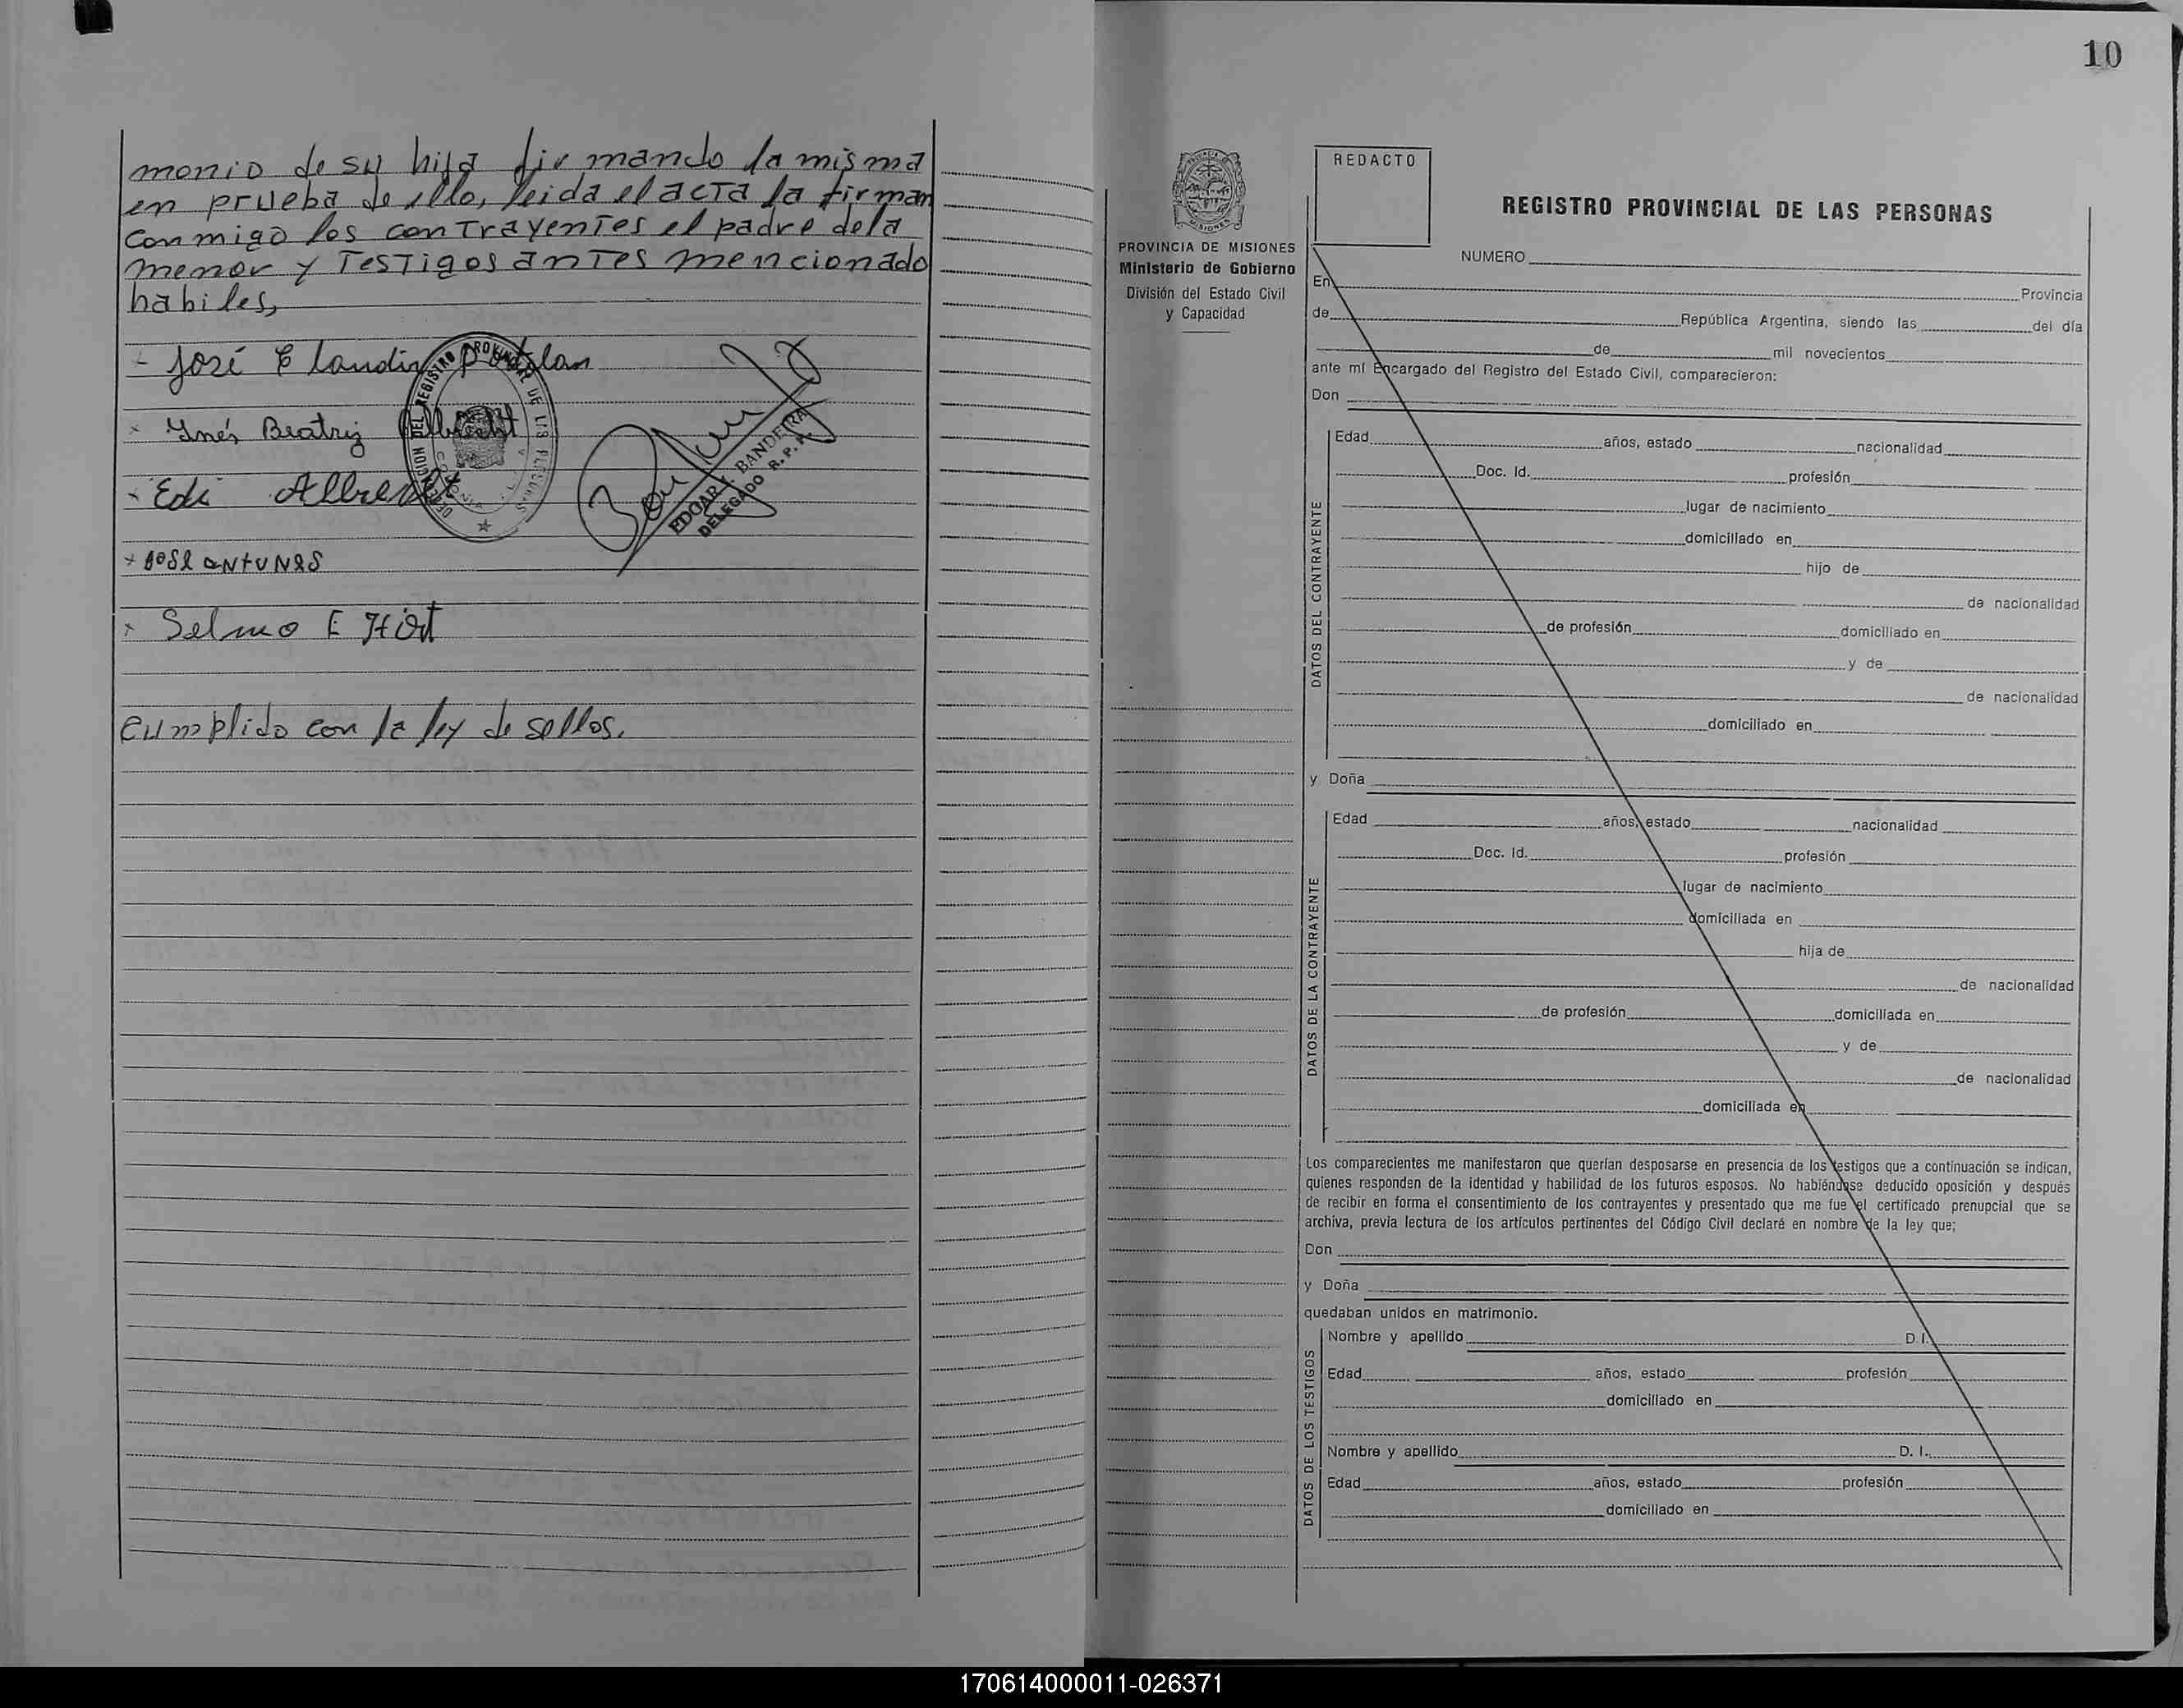 monio de su hija firmando la misma
en prueba de ello, leida el acta la firman
conmigo los contrayentes el padre de la
menor y Testigos antes mencionado
habiles,
- José Claudio
x Inés Beatriz Albrecht
x Edi Albrecht
x José antunes
x Selmo E Hirt
DELEGACION DEL REGISTRO PROVINCIAL DE LAS PERSONAS
COLONIA
EDGAR BANDEIRA
DELEGADO R. P. P.
Cumplido con la ley de sellos.
10
PROVINCIA DE MISIONES
Ministerio de Gobierno
División del Estado Civil
y Capacidad
REDACTO
REGISTRO PROVINCIAL DE LAS PERSONAS
NUMERO
En Provincia
de República Argentina, siendo las del día
de mil novecientos
ante mí Encargado del Registro del Estado Civil, comparecieron:
Don
DATOS DEL CONTRAYENTE
Edad años, estado nacionalidad
Doc. Id. profesión
lugar de nacimiento
domiciliado en
hijo de
de nacionalidad
de profesión domiciliado en
y de
de nacionalidad
domiciliado en
y Doña
DATOS DE LA CONTRAYENTE
Edad años, estado nacionalidad
Doc. Id. profesión
lugar de nacimiento
domiciliada en
hija de
de nacionalidad
de profesión domiciliada en
y de
de nacionalidad
domiciliada en
Los comparecientes me manifestaron que querían desposarse en presencia de los testigos que a continuación se indican,
quienes responden de la identidad y habilidad de los futuros esposos. No habiéndose deducido oposición y después
de recibir en forma el consentimiento de los contrayentes y presentado que me fue el certificado prenupcial que se
archiva, previa lectura de los artículos pertinentes del Código Civil declaré en nombre de la ley que;
Don
y Doña
quedaban unidos en matrimonio.
DATOS DE LOS TESTIGOS
Nombre y apellido D.I.
Edad años, estado profesión
domiciliado en
Nombre y apellido D. I.
Edad años, estado profesión
domiciliado en
170614000011-026371